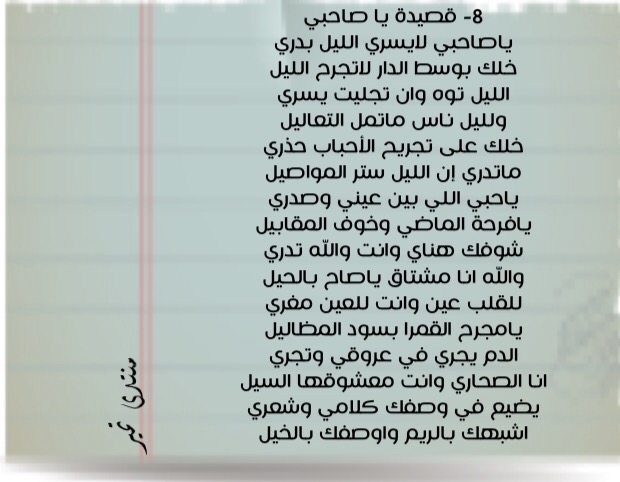 8- قصيدة يا صاحبي
ياصاحبي لايسري الليل بدري
خلك بوسط الدار لاتجرح الليل
الليل توه وان تجليت يسري
ولليل ناس ماتمل التعاليل
خلك على تجريح الأحباب حذري
ماتدري إن الليل ستر المواصيل
ياحبي اللي بين عيني وصدري
يافرحة الماضي وخوف المقابيل
شوفك هناي وانت والله تدري
والله انا مشتاق ياصاح بالحيل
للقلب عين وانت للعين مغري
يامجرح القمرا بسود المظاليل
الدم يجري في عروقي وتجري
انا الصحاري وانت معشوقها السيل
يضيع في وصفك كلامي وشعري
اشبهك بالريم واوصفك بالخيل
منتدى